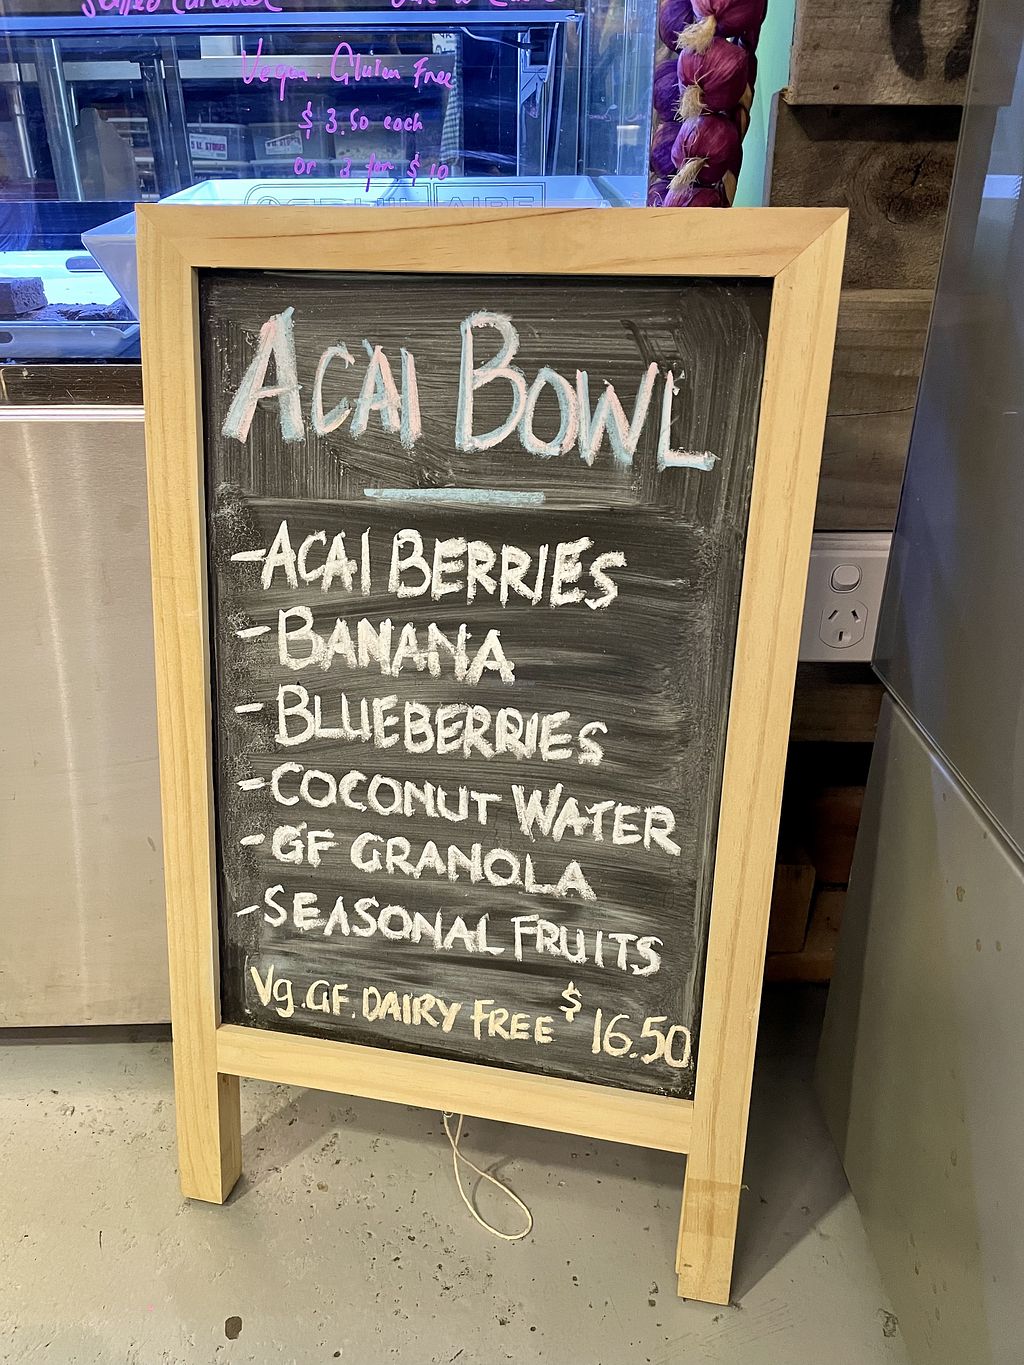 Salted Caramel
Vegan. Gluten Free
$3.50 each
or 3 for $10
ACAI BOWL
-ACAI BERRIES
-BANANA
-BLUEBERRIES
-COCONUT WATER
-GF GRANOLA
-SEASONAL FRUITS
Vg.GF.DAIRY FREE $16.50